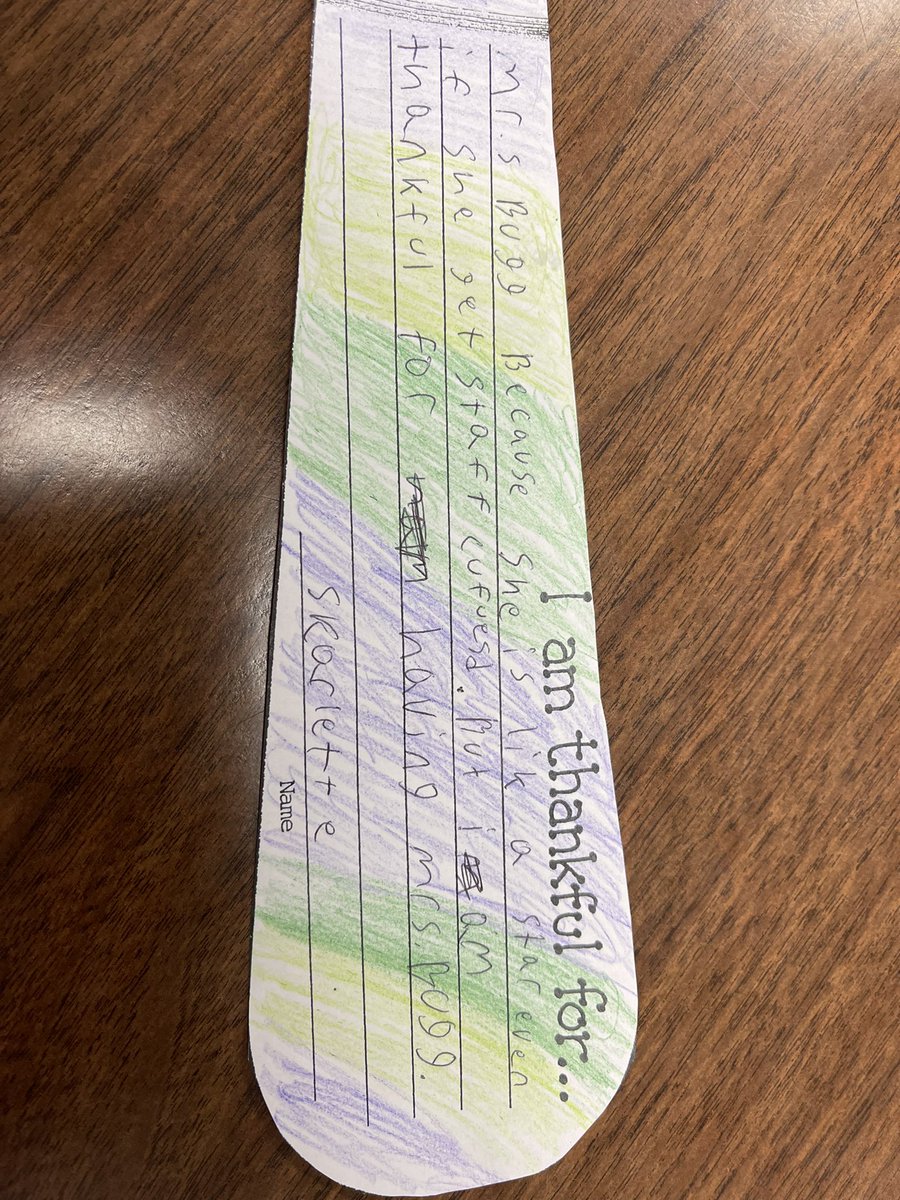 I am thankful for...
Mr.s Bugg Because she is lik a star even
if she get staff cufuesd. But i am
thankful for having mrs Bugg.
Skarlette
Name